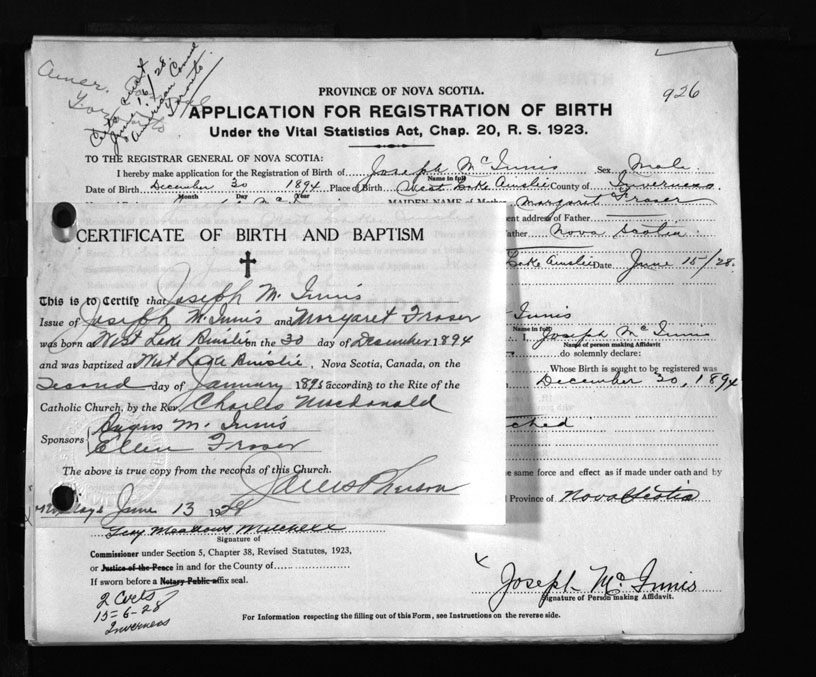 926
Amer.
June 1/6/28
American Consul
Toronto
PROVINCE OF NOVA SCOTIA.
APPLICATION FOR REGISTRATION OF BIRTH
Under the Vital Statistics Act, Chap. 20, R. S. 1923.
TO THE REGISTRAR GENERAL OF NOVA SCOTIA:
I hereby make application for the Registration of Birth of Joseph McInnis Sex Male
Name in full
Date of Birth December 30 1894 Place of Birth West Lake Ainslie County of Inverness
Month Day Year
MAIDEN NAME of Mother Margaret Fraser
ent address of Father
ather Nova Scotia
Lake Ainslie Date June 15/28.
CERTIFICATE OF BIRTH AND BAPTISM
This is to Certify that Joseph McInnis
Issue of Joseph McInnis and Margaret Fraser
was born at West Lake Ainslie on the 30 day of December 1894
and was baptized at West Lake Ainslie, Nova Scotia, Canada, on the
Second day of January 1895 according to the Rite of the
Catholic Church, by the Rev. Charles Macdonald
Sponsors Angus McInnis
Ellen Fraser
The above is true copy from the records of this Church.
June 13 1928
Innis
Name in full
I, Joseph McInnis
Name of person making Affidavit
do solemnly declare:
Whose Birth is sought to be registered was
December 30, 1894
ched
he same force and effect as if made under oath and by
Province of Nova Scotia
Meadows Mitchell
Signature of
Commissioner under Section 5, Chapter 38, Revised Statutes, 1923,
or Justice of the Peace in and for the County of
If sworn before a Notary Public affix seal.
2 Certs
15-6-28
Inverness
Joseph McInnis
Signature of Person making Affidavit.
For Information respecting the filling out of this Form, see Instructions on the reverse side.